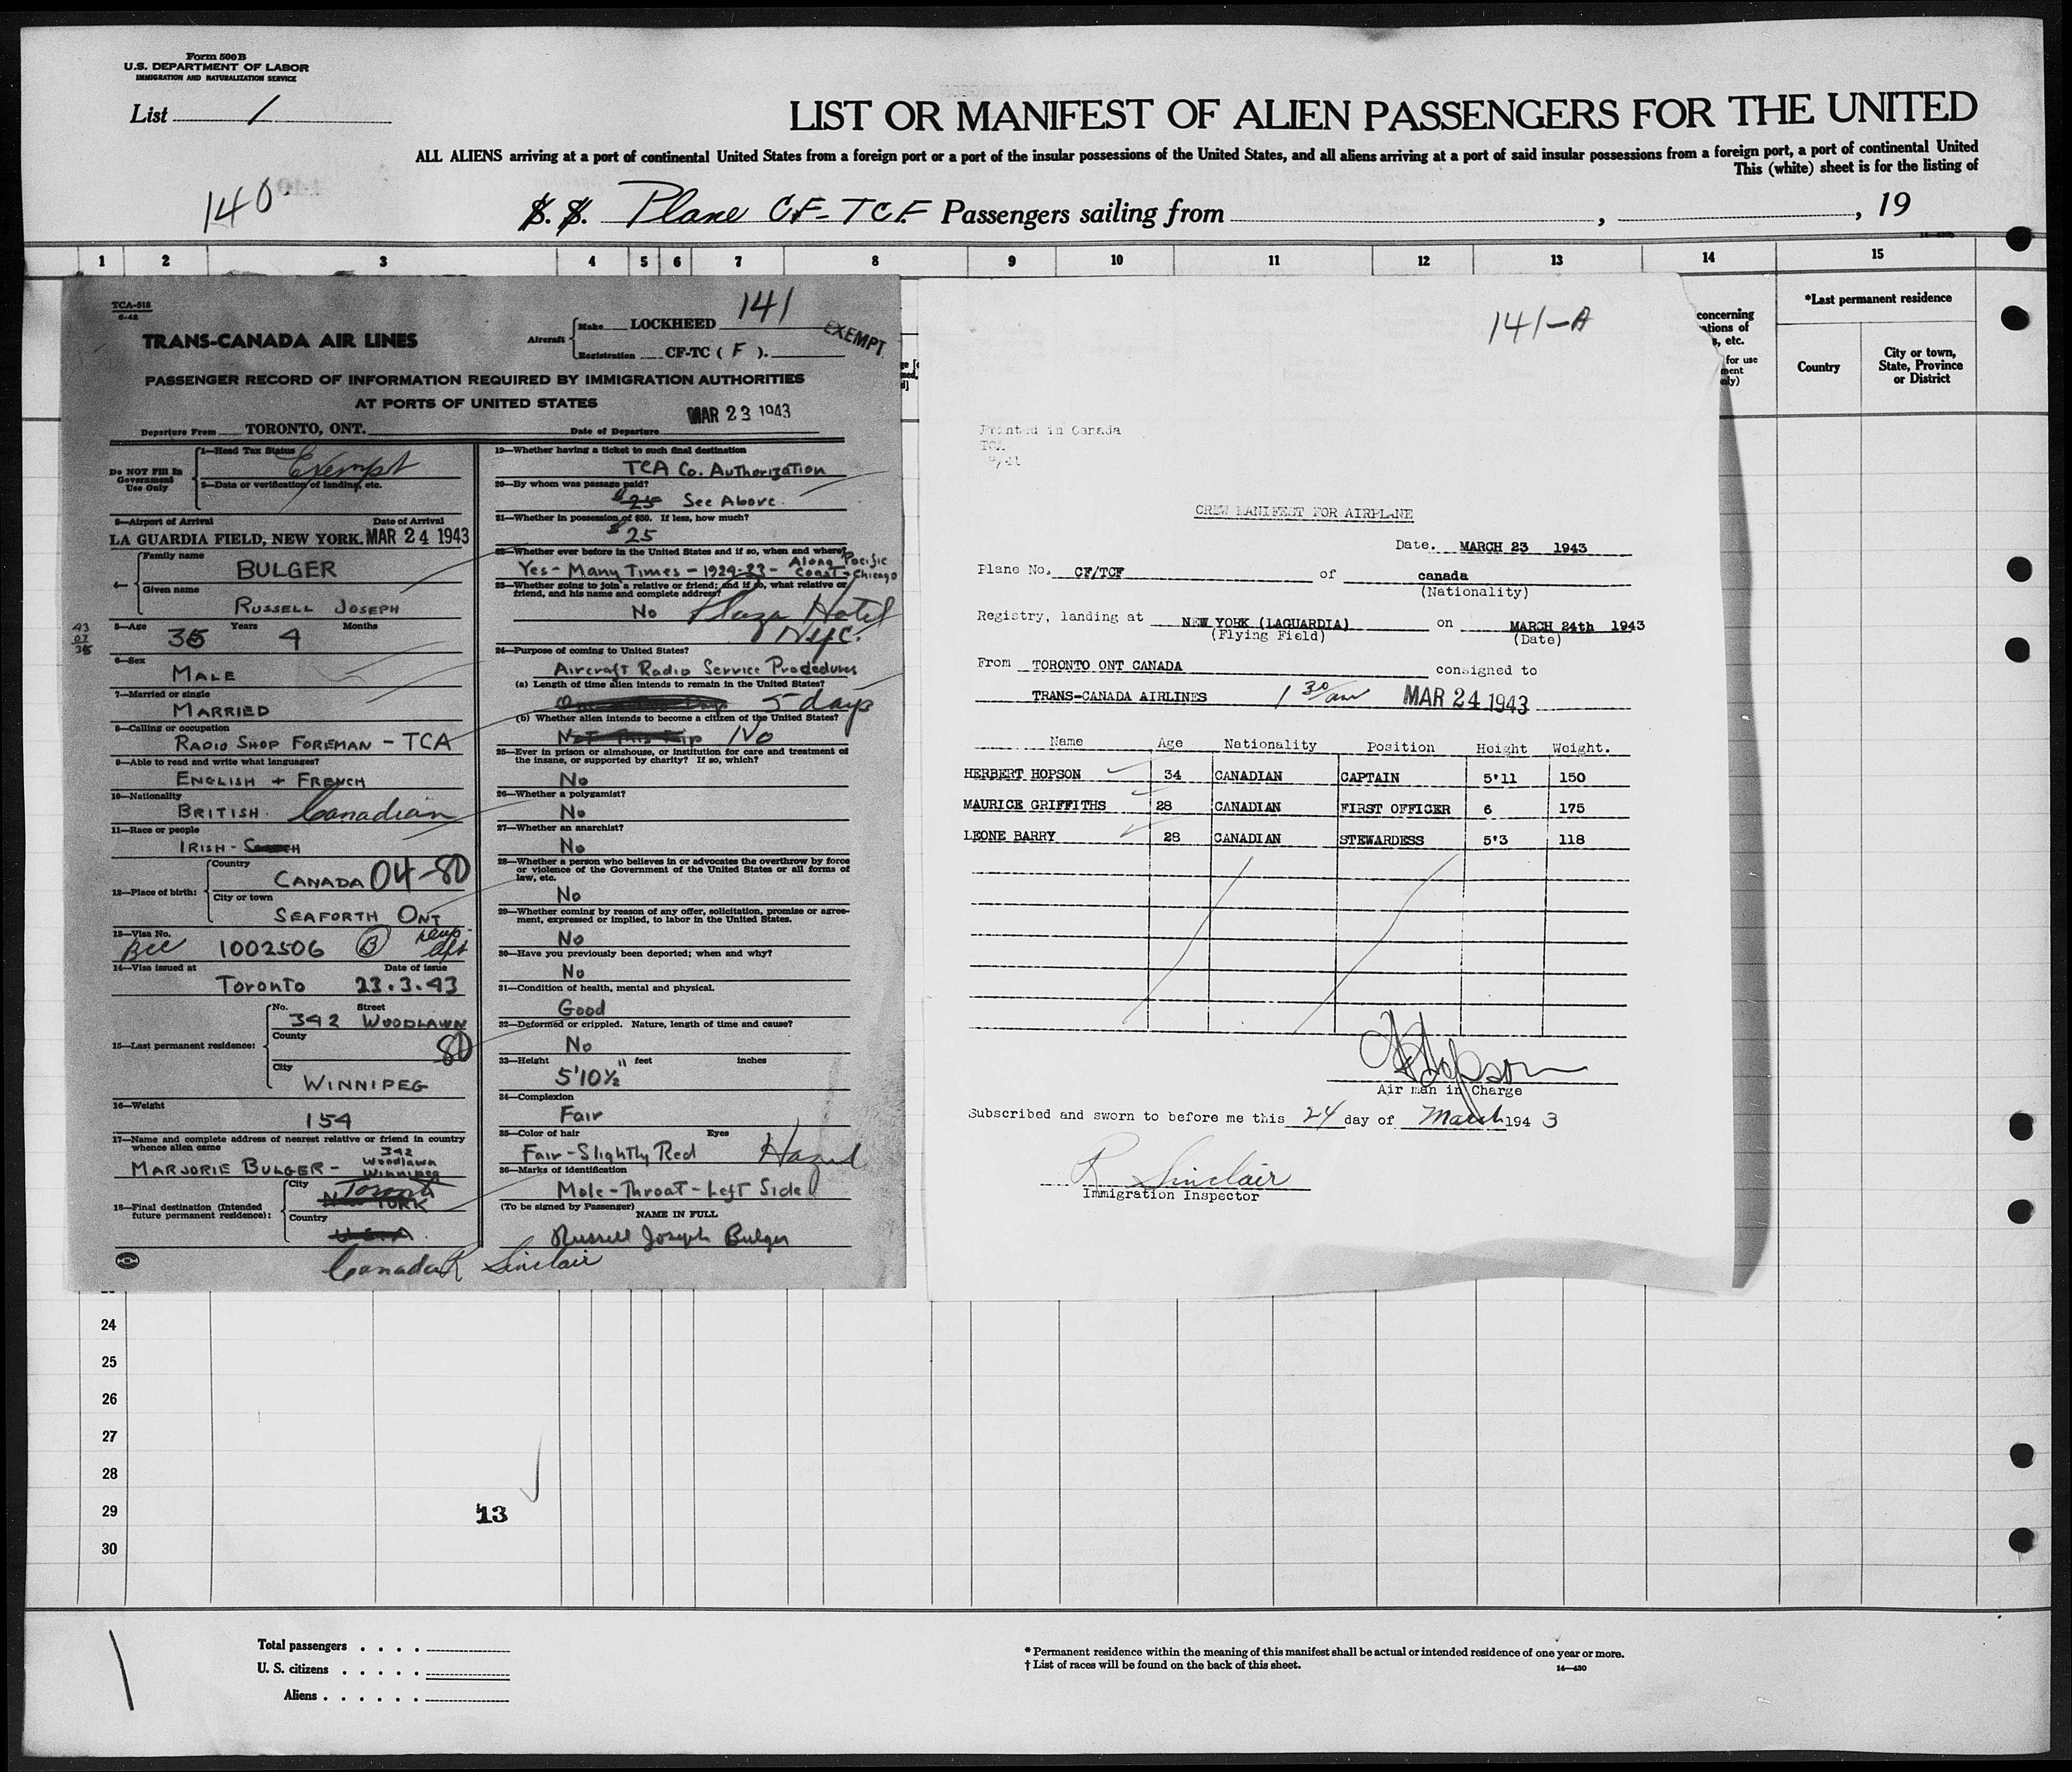 Form 500B
U.S. DEPARTMENT OF LABOR
IMMIGRATION AND NATURALIZATION SERVICE
List 1
LIST OR MANIFEST OF ALIEN PASSENGERS FOR THE UNITED
ALL ALIENS arriving at a port of continental United States from a foreign port or a port of the insular possessions of the United States, and all aliens arriving at a port of said insular possessions from a foreign port, a port of continental United
This (white) sheet is for the listing of
140
S. S. Plane CF-TCF Passengers sailing from , , 19
1 2 3 4 5 6 7 8 9 10 11 12 13 14 15
TCA-518
6-42
141
EXEMPT
TRANS-CANADA AIR LINES
Aircraft Make LOCKHEED
Registration CF-TC ( F ).
PASSENGER RECORD OF INFORMATION REQUIRED BY IMMIGRATION AUTHORITIES
AT PORTS OF UNITED STATES
MAR 23 1943
Departure From TORONTO, ONT. Date of Departure
Do NOT Fill In
Government
Use Only
1—Head Tax Status
Exempt
2—Date or verification of landing, etc.
3—Airport of Arrival Date of Arrival
LA GUARDIA FIELD, NEW YORK. MAR 24 1943
4— Family name
BULGER
Given name
RUSSELL JOSEPH
5—Age Years Months
35 4
43
07
35
6—Sex
MALE
7—Married or single
MARRIED
8—Calling or occupation
RADIO SHOP FOREMAN - TCA
9—Able to read and write what languages?
ENGLISH + FRENCH
10—Nationality
BRITISH. Canadian
11—Race or people
IRISH -
12—Place of birth:
Country
CANADA 04-80
City or town
SEAFORTH ONT
13—Visa No.
BCC 1002506 B
14—Visa issued at Date of issue
Toronto 23.3.43
15—Last permanent residence:
No. Street
342 WOODLAWN
County
80
City
WINNIPEG
16—Weight
154
17—Name and complete address of nearest relative or friend in country
whence alien came
MARJORIE BULGER - 342
Woodlawn
Winnipeg
18—Final destination (Intended
future permanent residence):
City
Toronto
NEW YORK
Country
USA
Canada
19—Whether having a ticket to such final destination
TCA Co. AUTHORIZATION
20—By whom was passage paid?
$25 See Above.
21—Whether in possession of $50. If less, how much?
$25
22—Whether ever before in the United States and if so, when and where?
Yes - Many Times - 1929-33 - Along Pacific
Coast - Chicago
23—Whether going to join a relative or friend; and if so, what relative or
friend, and his name and complete address?
No Plaza Hotel
NYC.
24—Purpose of coming to United States?
Aircraft Radio Service Procedures
(a) Length of time alien intends to remain in the United States?
5 days
(b) Whether alien intends to become a citizen of the United States?
Not This Trip No
25—Ever in prison or almshouse, or institution for care and treatment of
the insane, or supported by charity? If so, which?
No
26—Whether a polygamist?
No
27—Whether an anarchist?
No
28—Whether a person who believes in or advocates the overthrow by force
or violence of the Government of the United States or all forms of
law, etc.
No
29—Whether coming by reason of any offer, solicitation, promise or agree-
ment, expressed or implied, to labor in the United States.
No
30—Have you previously been deported; when and why?
No
31—Condition of health, mental and physical.
Good
32—Deformed or crippled. Nature, length of time and cause?
No
33—Height feet inches
5'10½"
34—Complexion
Fair
35—Color of hair Eyes
Fair - Slightly Red Hazel
36—Marks of identification
Mole - Throat - Left Side
(To be signed by Passenger)
NAME IN FULL
Russell Joseph Bulger
R Sinclair
141-A
Printed in Canada
TCA
CREW MANIFEST FOR AIRPLANE
Date. MARCH 23 1943
Plane No. CF/TCF of canada
(Nationality)
Registry, landing at NEW YORK (LAGUARDIA) on MARCH 24th 1943
(Flying Field) (Date)
From TORONTO ONT CANADA consigned to
TRANS-CANADA AIRLINES 1 30/am MAR 24 1943
Name Age Nationality Position Height Weight.
HERBERT HOPSON 34 CANADIAN CAPTAIN 5'11 150
MAURICE GRIFFITHS 28 CANADIAN FIRST OFFICER 6 175
LEONE BARRY 28 CANADIAN STEWARDESS 5'3 118
H Hopson
Air man in Charge
Subscribed and sworn to before me this 24 day of March 1943
R Sinclair
Immigration Inspector
concerning
etc.
for use
*Last permanent residence
Country
City or town,
State, Province
or District
24
25
26
27
28
29
30
13
Total passengers . . . .
U. S. citizens . . . . .
Aliens . . . . . .
* Permanent residence within the meaning of this manifest shall be actual or intended residence of one year or more.
† List of races will be found on the back of this sheet.
14—430